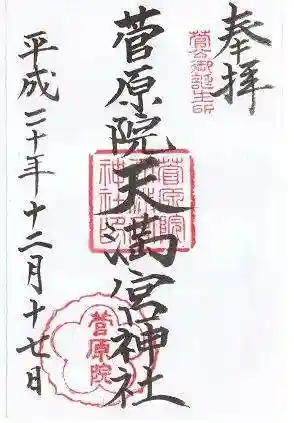 奉拝
菅公御誕生所
菅原院天満宮神社
菅原院
天満宮
神社印
菅原院
平成二十年十二月十七日